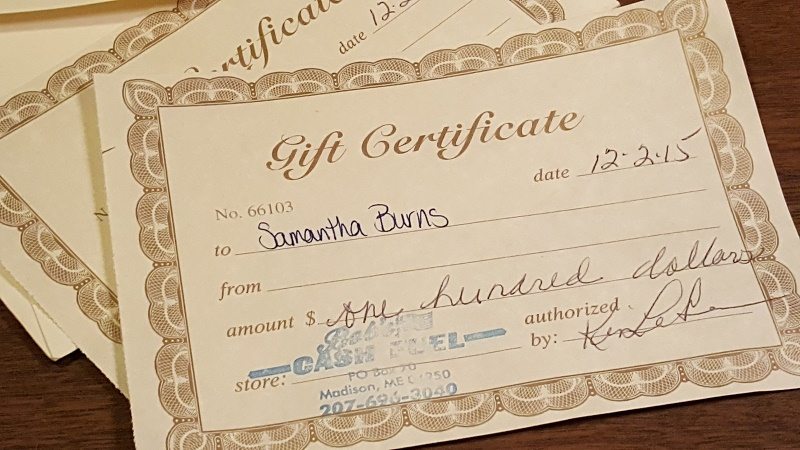 Certificate
date 12-2
Gift Certificate
date 12-2-15
No. 66103
to Samantha Burns
from
amount $ one hundred dollars
authorized
by:
Bob's
CASH FUEL
store:
PO Box 70
Madison, ME 04950
207-696-3040